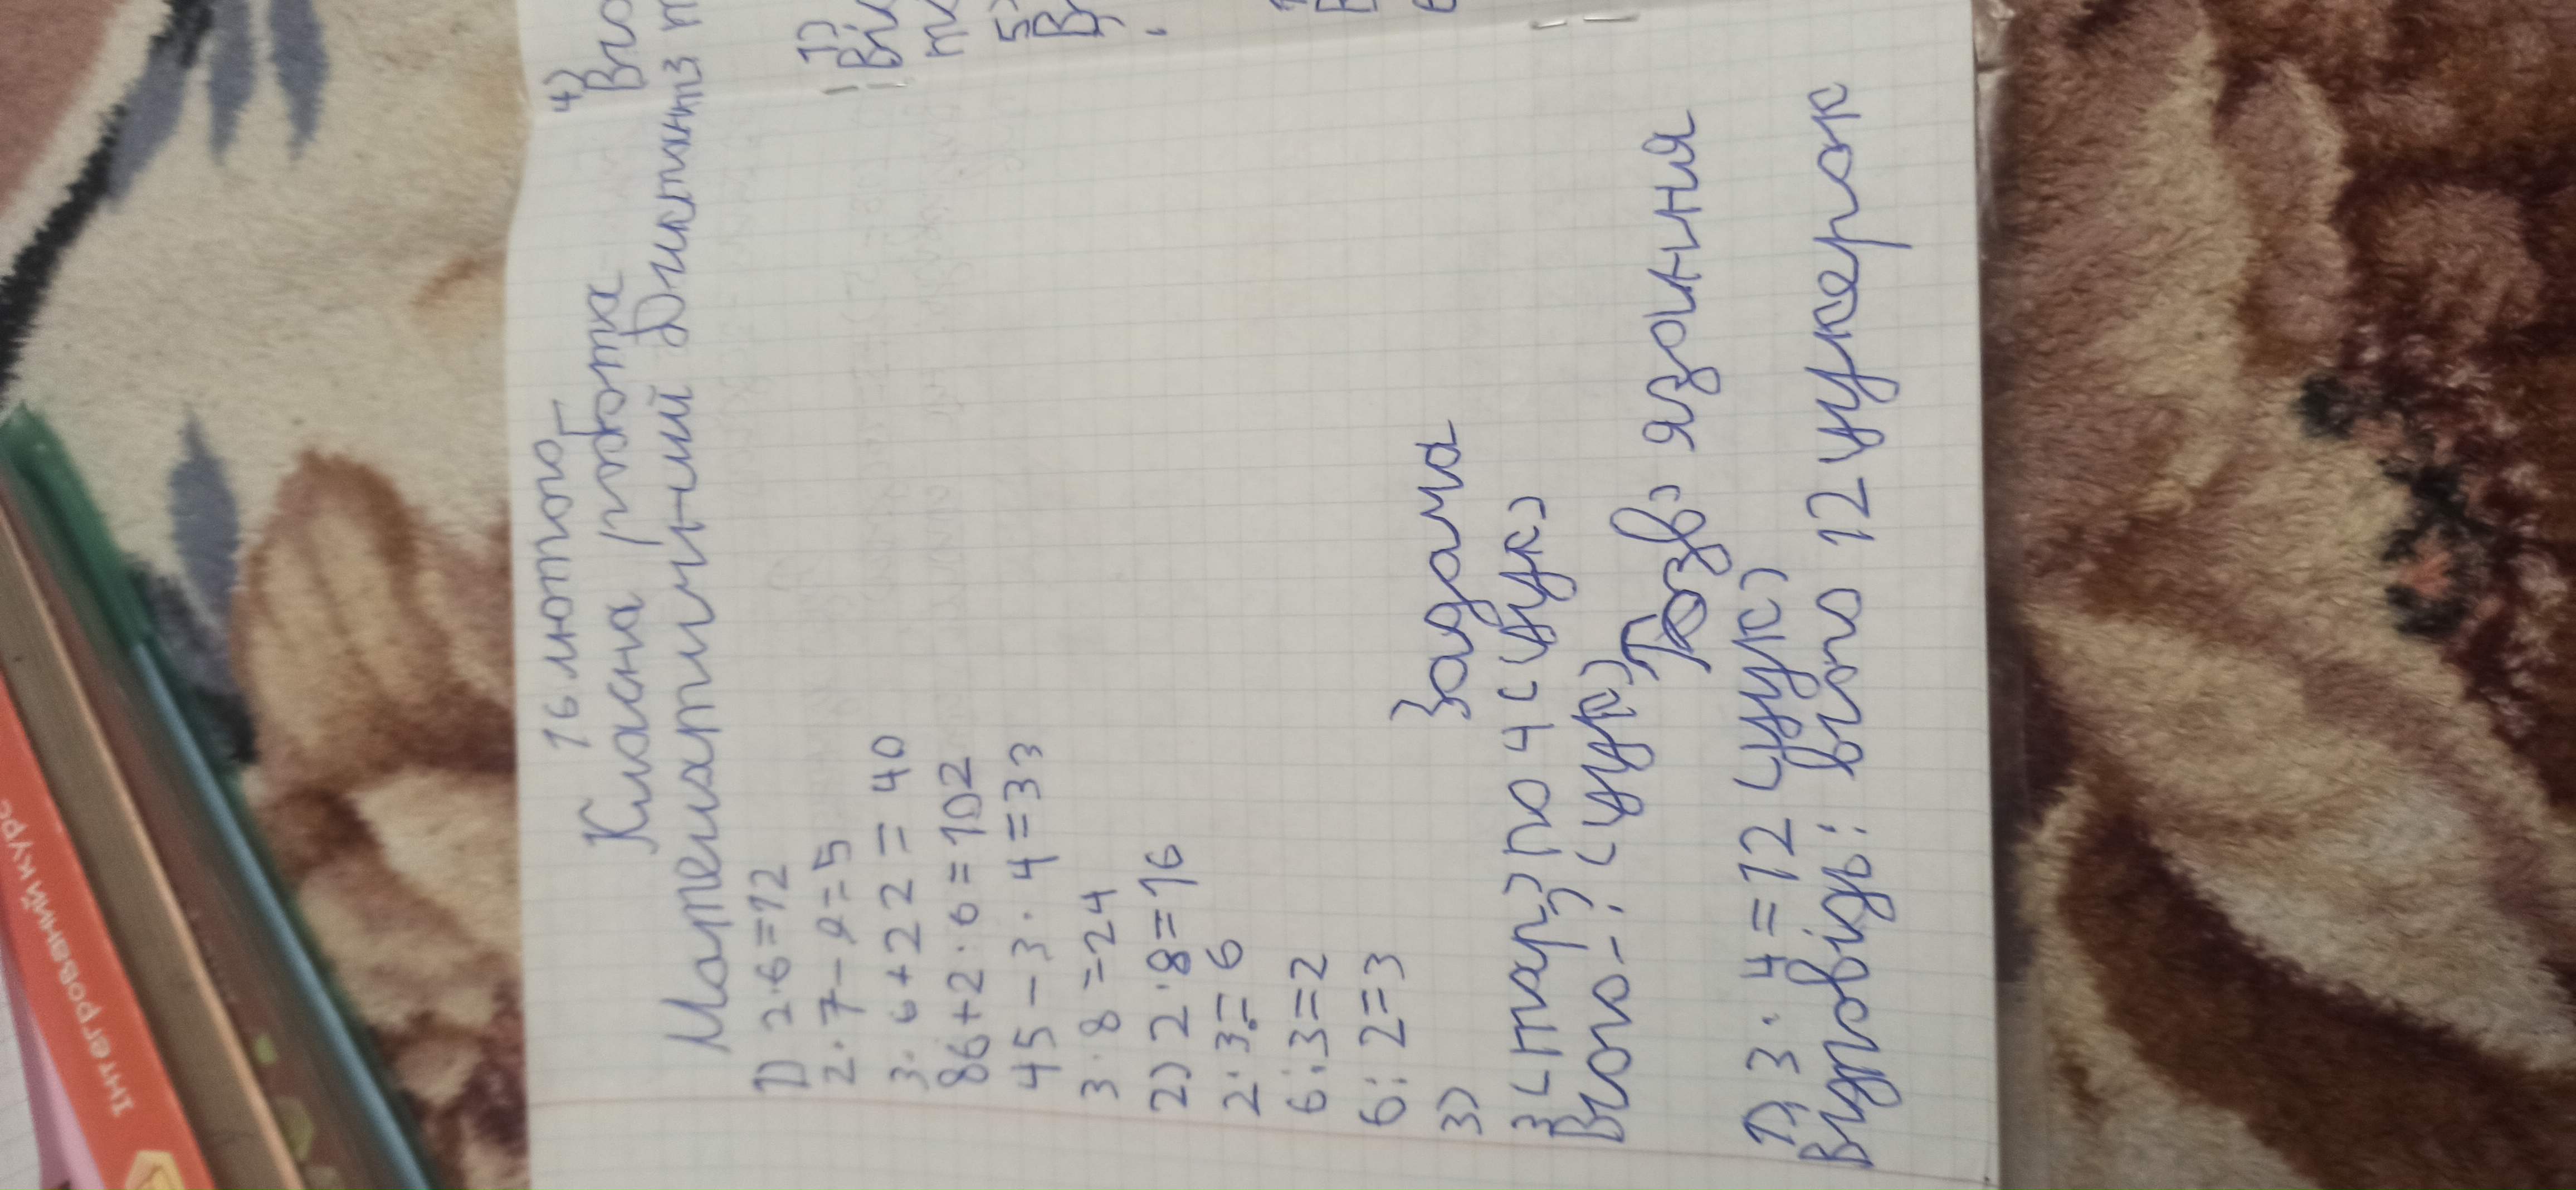 16 лютого
Класна робота
Математичний Диктант
1) 2·6=12
2·7-9=5
3·6+22=40
86+2·6=102
45-3·4=33
3·8=24
2) 2·8=16
2·3=6
6:3=2
6:2=3
3) Задача
3(тар) по 4(цук)
Всього-?(цук)
Розвʼязання
1) 3·4=12(цук)
Відповідь: 12 цукерок
4)
1)
5)
Інтегрований курс